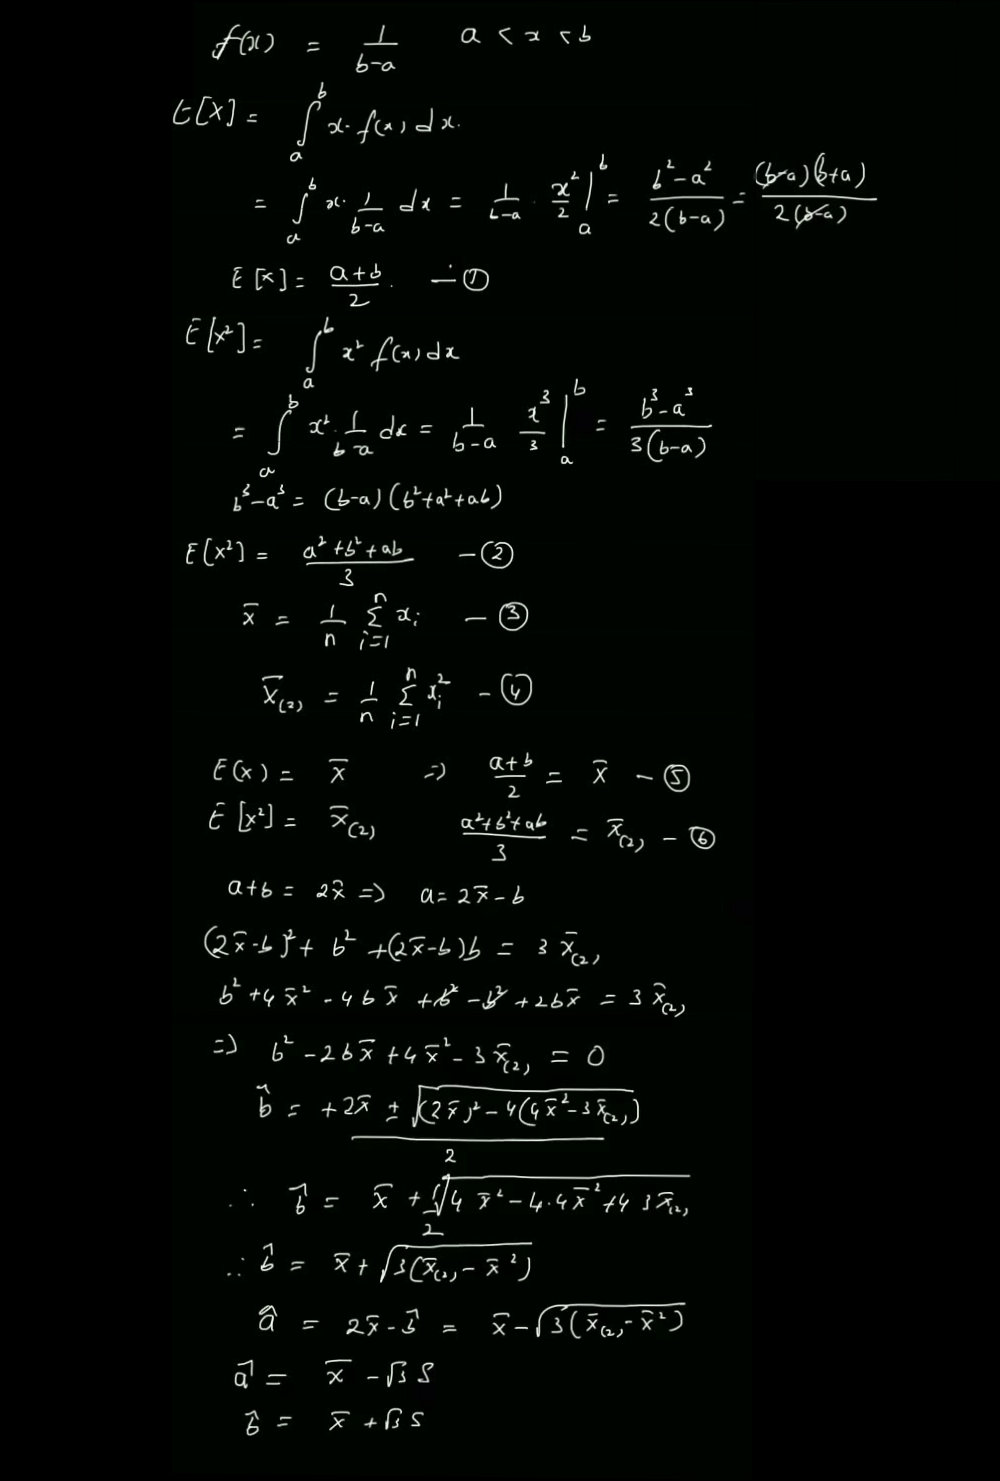 f(x) = 1/(b-a)   a < x < b
E[X] = ∫_a^b x. f(x) dx.
= ∫_a^b x. 1/(b-a) dx = 1/(b-a) . x²/2 |_a^b = (b²-a²)/(2(b-a)) = (b-a)(b+a)/(2(b-a))
E[X] = (a+b)/2. — ①
E[X²] = ∫_a^b x² f(x) dx
= ∫_a^b x². 1/(b-a) dx = 1/(b-a) x³/3 |_a^b = (b³-a³)/(3(b-a))
b³-a³ = (b-a)(b²+a²+ab)
E[X²] = (a²+b²+ab)/3 — ②
x̄ = 1/n Σ_{i=1}^n x_i — ③
x̄_(2) = 1/n Σ_{i=1}^n x_i² — ④
E(x) = x̄ ⇒ (a+b)/2 = x̄ — ⑤
E[X²] = x̄_(2)   (a²+b²+ab)/3 = x̄_(2) — ⑥
a+b = 2x̄ ⇒ a = 2x̄-b
(2x̄-b)² + b² + (2x̄-b)b = 3 x̄_(2)
b² + 4x̄² - 4bx̄ + b² - b² + 2bx̄ = 3 x̄_(2)
⇒ b² - 2bx̄ + 4x̄² - 3x̄_(2) = 0
b̂ = +2x̄ ± √((2x̄)² - 4(4x̄² - 3x̄_(2))) / 2
∴ b̂ = x̄ + 1/2 √(4 x̄² - 4.4x̄² + 4 3x̄_(2))
∴ b̂ = x̄ + √(3(x̄_(2) - x̄²))
â = 2x̄ - b̂ = x̄ - √(3(x̄_(2) - x̄²))
â = x̄ - √3 S
b̂ = x̄ + √3 S